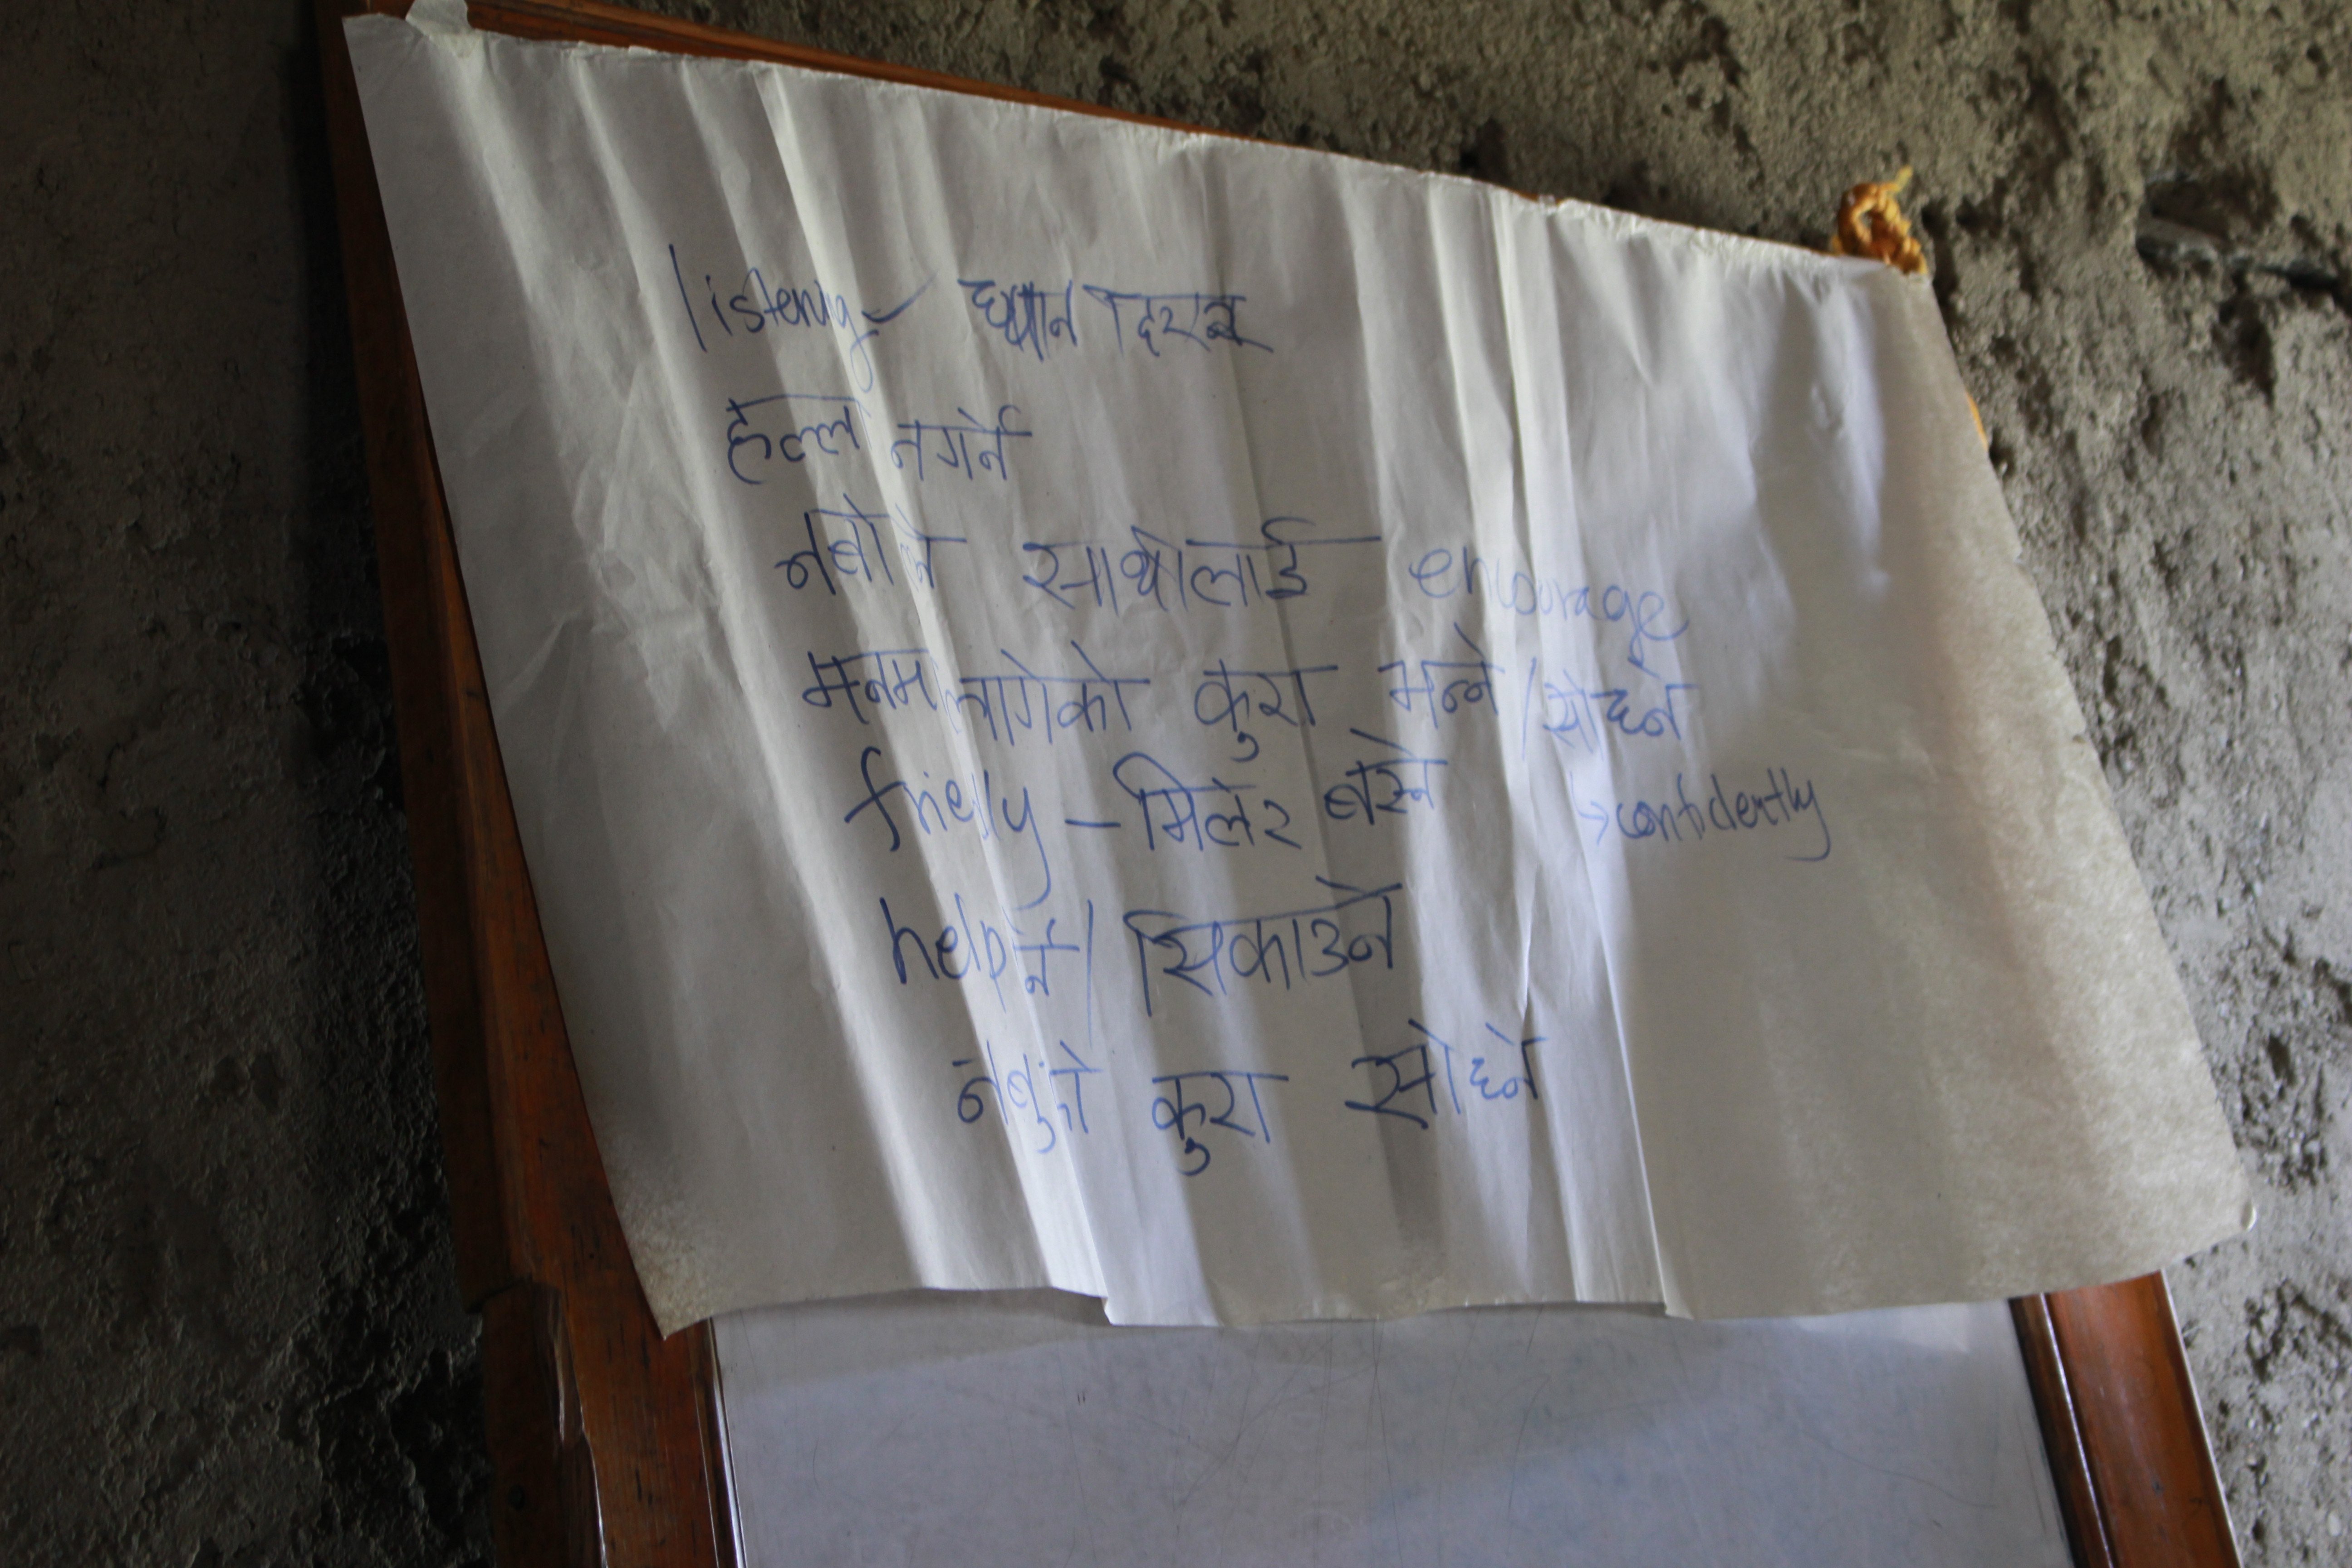 listening - ध्यान दिएर
हल्ला नगर्ने
नबोल्ने साथीलाई encourage
मनमा लागेको कुरा भन्ने / सोध्ने
friendly - मिलेर बस्ने → confidently
help गर्ने / सिकाउने
नबुझेको कुरा सोध्ने